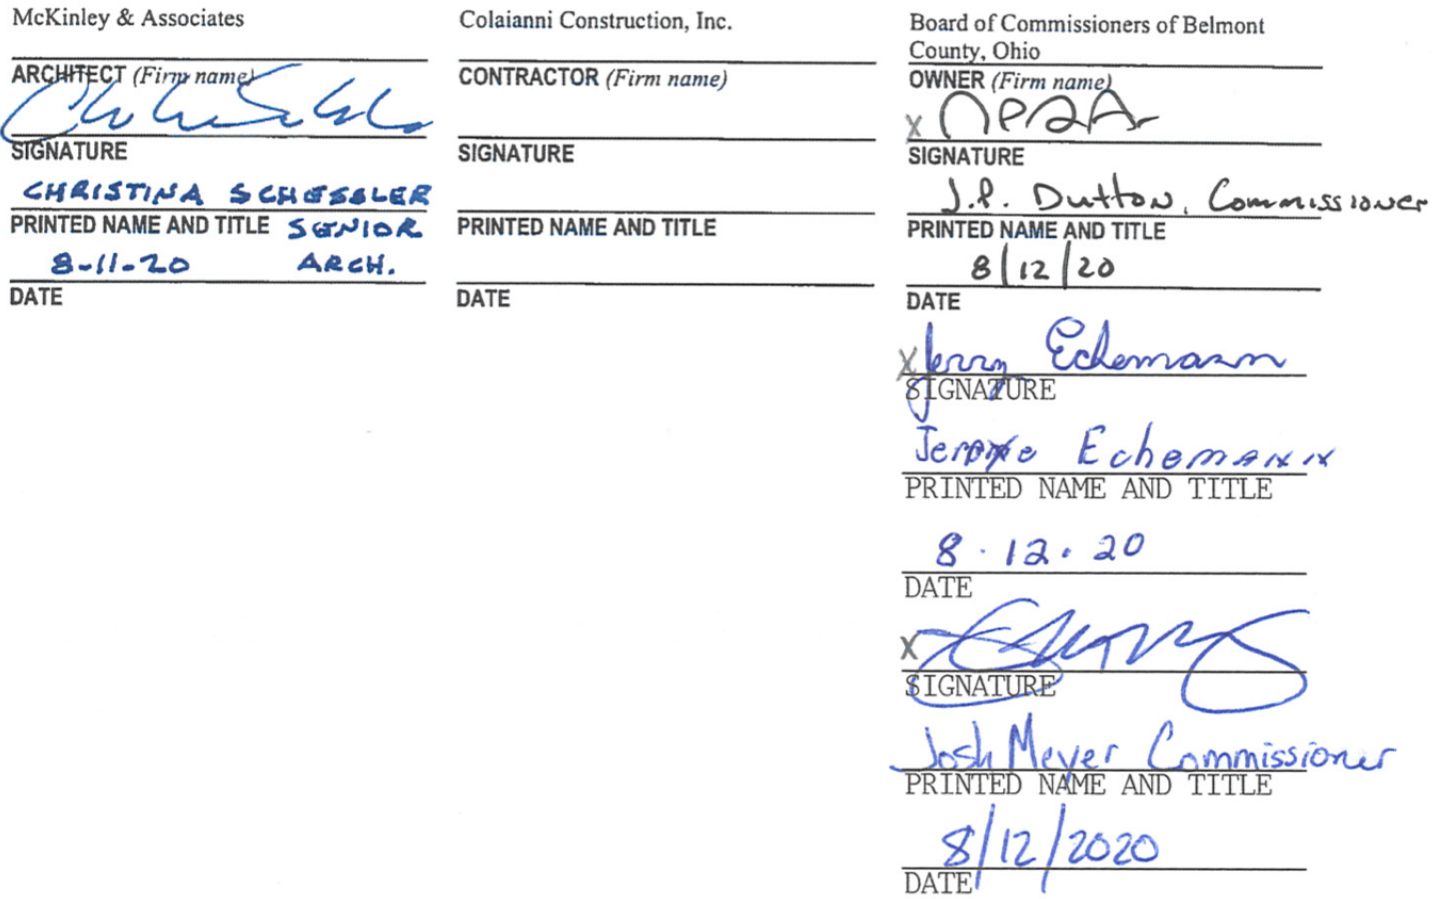 McKinley & Associates
ARCHITECT (Firm name)
SIGNATURE
CHRISTINA SCHESSLER
PRINTED NAME AND TITLE SENIOR
8-11-20 ARCH.
DATE
Colaianni Construction, Inc.
CONTRACTOR (Firm name)
SIGNATURE
PRINTED NAME AND TITLE
DATE
Board of Commissioners of Belmont
County, Ohio
OWNER (Firm name)
X
SIGNATURE
J.P. Dutton, Commissioner
PRINTED NAME AND TITLE
8/12/20
DATE
X Jerry Echemann
SIGNATURE
Jerome Echemann
PRINTED NAME AND TITLE
8.12.20
DATE
X
SIGNATURE
Josh Meyer Commissioner
PRINTED NAME AND TITLE
8/12/2020
DATE